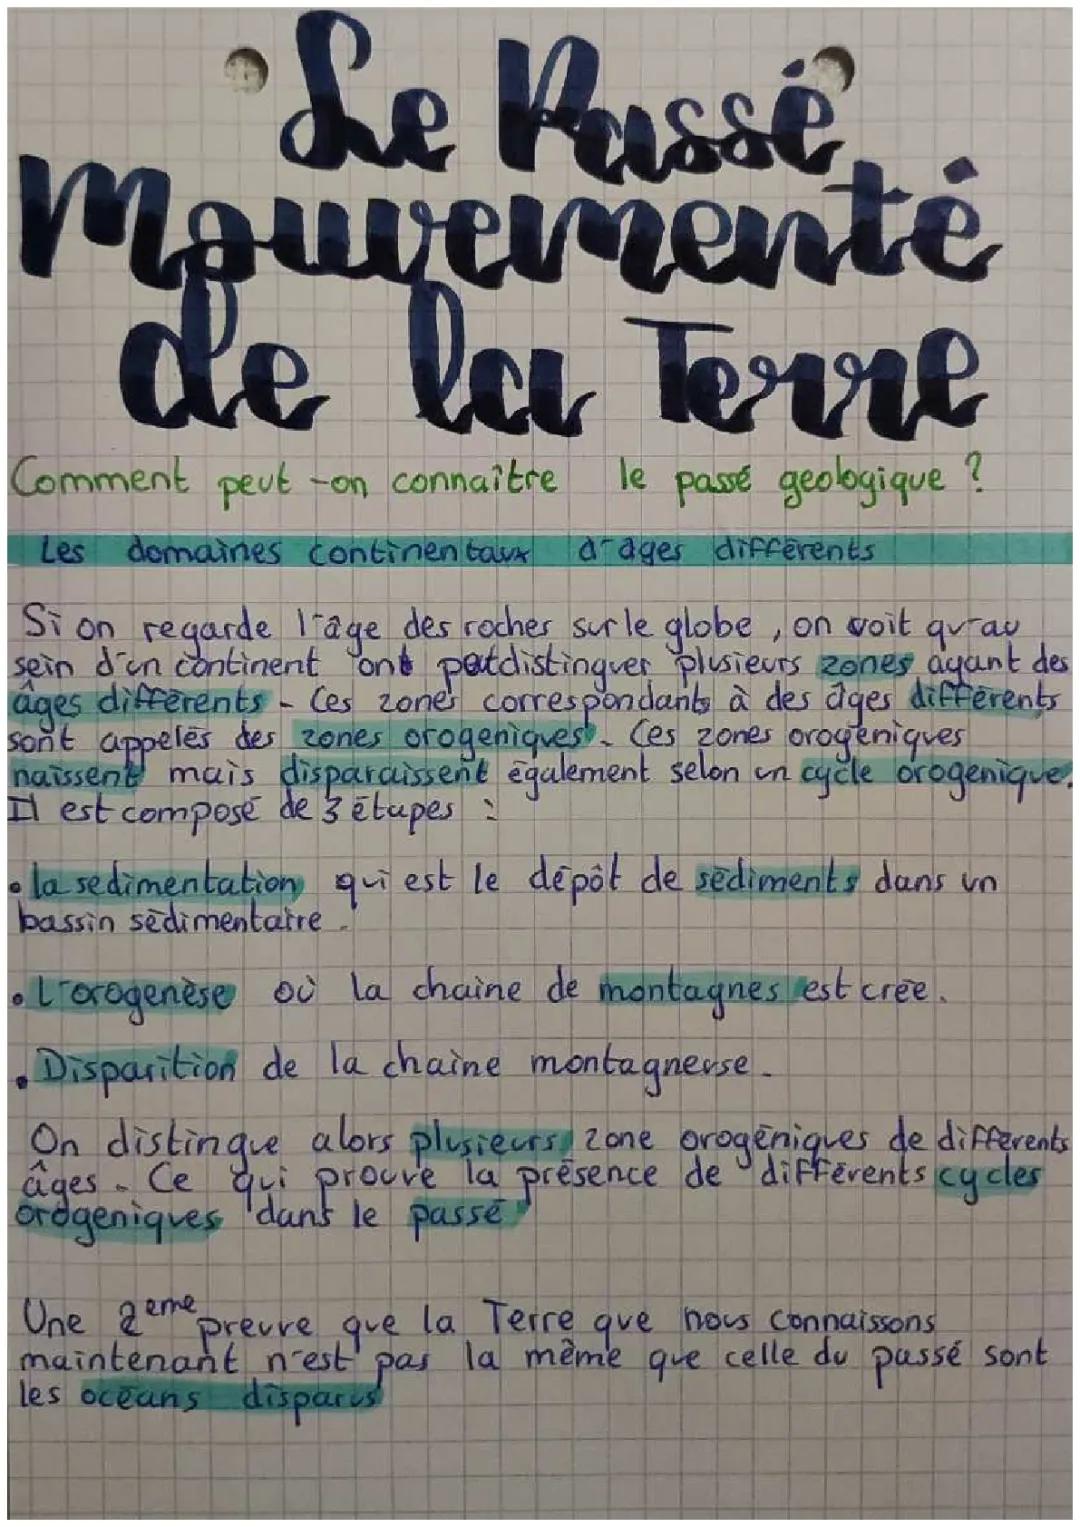 Le Passé
Mouvementé
de la Terre
Comment peut-on connaître le passé geologique ?
Les domaines continentaux d'ages différents
Si on regarde l'âge des roches sur le globe, on voit qu'au
sein d'un continent ont peut distinguer plusieurs zones ayant des
âges différents. Ces zones correspondants à des âges différents
sont appelés des zones orogeniques. Ces zones orogéniques
naissent mais disparaissent également selon un cycle orogenique.
Il est composé de 3 étapes :
• la sedimentation, qui est le dépôt de sédiments dans un
bassin sédimentaire.
• L'orogenèse où la chaine de montagnes est crée.
• Disparition de la chaine montagneuse.
On distingue alors plusieurs zone orogéniques de différents
âges. Ce qui prouve la présence de différents cycles
orogeniques dans le passé
Une 2eme preuve que la Terre que nous connaissons
maintenant n'est pas la même que celle du passé sont
les océans disparus